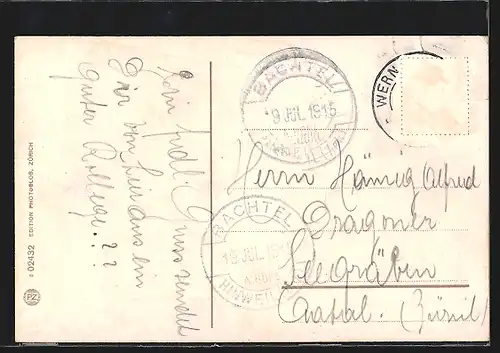 Ein frdl. Gruss sendet
Dir von hier aus ein
guter Kollege.??
EDITION PHOTOGLOB, ZÜRICH
02432
PZ
BACHTEL
19 JUL. 1915
HINWEIL
BACHTEL
19 JUL. 191
HINWEIL
WERN
Herrn Hämig Alfred
Dragoner
Seegräben
Aatal. (Zürich)